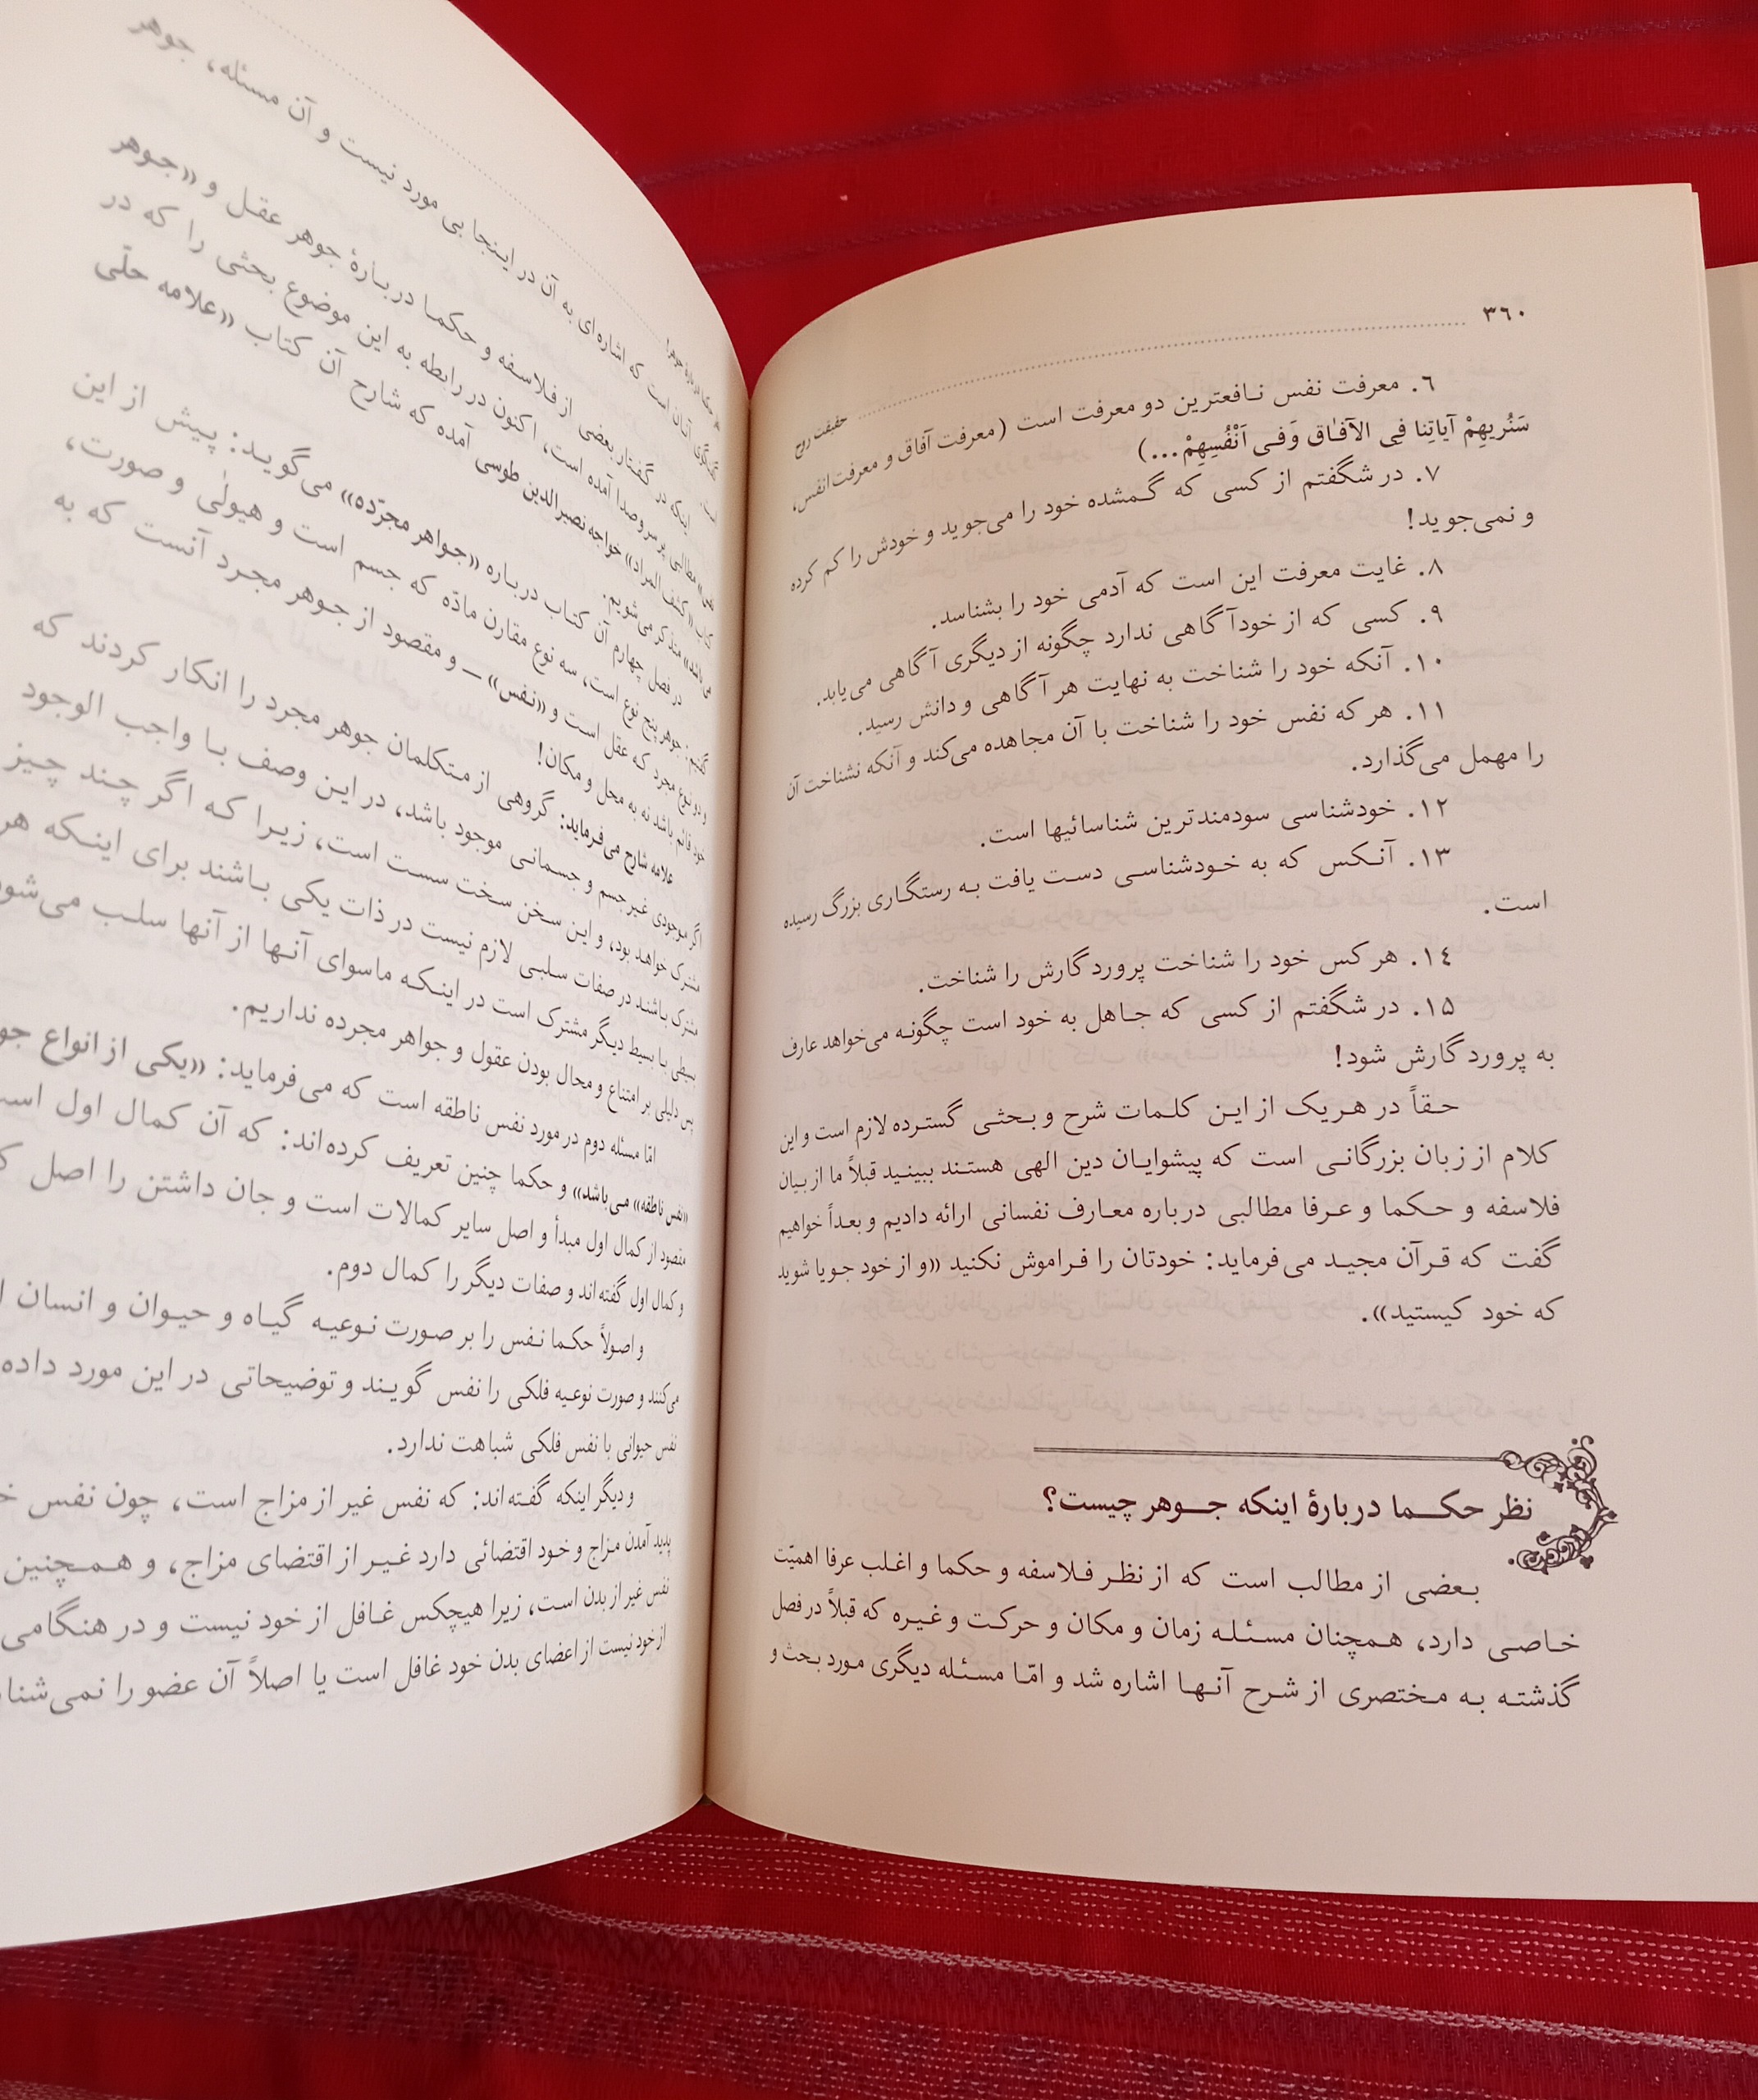 ۳۶۰
حقیقت روح
۶. معرفت نفس نـافعترین دو معرفت است (معرفت آفاق و معرفت انفس،
سَنُریهِمْ آیاتِنا فِی الآفـٰاق وَفـی اَنْفُسِهِمْ...)
۷. در شگفتم از کسی که گـمشده خود را می‌جوید و خودش را کم کرده
و نمی‌جوید!
۸. غایت معرفت این است که آدمی خود را بشناسد.
۹. کسی که از خودآگاهی ندارد چگونه از دیگری آگاهی می‌یابد.
۱۰. آنکه خود را شناخت به نهایت هر آگاهی و دانش رسید.
۱۱. هر که نفس خود را شناخت با آن مجاهده می‌کند و آنکه نشناخت آن
را مهمل می‌گذارد.
۱۲. خودشناسی سودمندترین شناسائیها است.
۱۳. آنـکس که به خـودشناسـی دسـت یافت بـه رستگـاری بزرگ رسیده
است.
۱٤. هر کس خود را شناخت پروردگارش را شناخت.
۱۵. در شگفتم از کسی که جـاهل به خود است چگونـه می‌خواهد عارف
به پروردگارش شود!
حـقاً در هـریک از ایـن کلـمات شرح و بـحثـی گستـرده لازم است و این
کلام از زبان بزرگانـی است که پیشوایـان دین الهی هستـند ببینـید قبلاً ما از بیان
فلاسفه و حـکما و عـرفا مطالبی درباره معـارف نفسانی ارائه دادیم و بعـداً خواهیم
گفت که قـرآن مجیـد می‌فرماید: خودتان را فـراموش نکنید «و از خود جـویا شوید
که خود کیستید».
نظر حکـــما دربارهٔ اینکه جـــوهر چیست؟
بـعضی از مطالب است که از نظـر فـلاسفه و حکما و اغـلب عرفا اهمیّت
خـاصـی دارد، هـمچنان مسـئـلـه زمان و مکان و حرکـت و غـیـره که قبلاً در فصل
گذشتـه بـه مـختصری از شـرح آنـهـا اشاره شد و امّـا مسـئـله دیگری مـورد بـحث و
گفتگوی آنـان است که اشاره‌ای به آن در اینجا بی مورد نیست و آن مسئله، جوهر
است.
اینکه در گفـتار بعضی از فـلاسـفه و حکمـا دربـارهٔ جوهر عقـل و «جـوهر
مطالبی بر سر و صدا آمده است، اکنون در رابطه به این موضوع بحثی را که در
کتاب «کشف المراد» خواجه نصیرالدین طوسی آمده که شارح آن کتاب «علامه حلّی
می‌باشد» متذکر می‌شویم.
در فصل چهارم آن کتاب دربـاره «جـواهر مجرّده» می‌گویـد: پـیـش از این
گفتیم: جوهر پنج نوع است، سه نوع مقارن مادّه که جسم است و هیولٰی و صورت،
و دو نوع مجرد که عقل است و «نفس» ــ و مقصود از جـوهر مجـرد آنست که به
خود قائم باشد نه به محل و مکان!
علامه شارح می‌فرماید: گروهی از متکلمان جوهر مجرد را انکار کردند که
اگر موجودی غیر جسم و جسمانی موجود باشد، در این وصف بـا واجب الوجود
مشترک خواهد بود، و این سـخن سخت سست است، زیـرا کـه اگر چنـد چـیز
مشترک باشند در صفات سلبـی لازم نیست در ذات یکی بـاشند برای اینـکه هر
بسیطی بـا بسیط دیگر مشترک است در اینـکـه ماسوای آنـها از آنها سلـب می‌شود
پس دلیلی بر امتناع و محال بودن عقول و جواهر مجرده نداریم.
امّا مسئله دوم در مورد نفس ناطقه است که می‌فرماید: «یکی از انواع
«نفس ناطقه» می‌باشد» و حکما چنین تعریف کرده‌اند: که آن کمال اول
مقصود از کمال اول مبدأ و اصل سایر کمالات است و جان داشتن را اصل
و کمال اول گفته‌اند و صفات دیگر را کمال دوم.
و اصولاً حکـما نـفس را بر صـورت نـوعیـه گیـاه و حیـوان و انسان
می‌کنند و صورت نوعیه فلکی را نفس گویـند و توضیحاتی در این مورد داده
نفس حیوانی با نفس فلکی شباهت ندارد.
و دیگر اینکه گفته‌اند: که نفس غیر از مزاج است، چون نفس
پدید آمدن مـزاج و خـود اقتضائی دارد غـیـر از اقتضای مزاج، و هـمـچنین
نفس غیر از بدن اسـت، زیرا هیچکس غـافل از خود نیست و در هنگامی
از خود نیست از اعضای بدن خود غافل است یا اصلاً آن عضو را